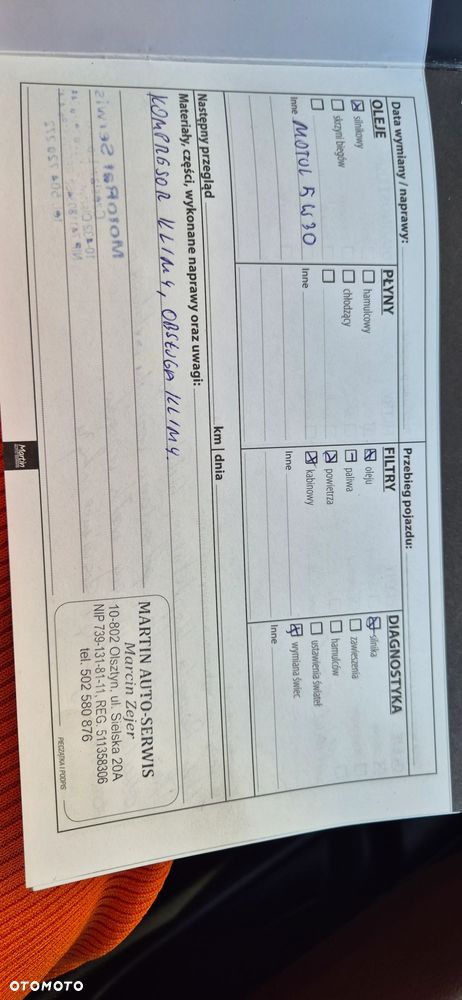 Data wymiany / naprawy:
Przebieg pojazdu:
OLEJE
silnikowy
skrzyni biegów
Inne MOTUL 5W30
PŁYNY
hamulcowy
chłodzący
Inne
FILTRY
oleju
paliwa
powietrza
kabinowy
Inne
DIAGNOSTYKA
silnika
zawieszenia
hamulców
ustawienia świateł
wymiana świec
Inne
Następny przegląd km I dnia
Materiały, części, wykonane naprawy oraz uwagi:
KOMPRESOR KLIMY, OBSŁUGA KLIMY.
MARTIN AUTO-SERWIS
Marcin Zejer
10-802 Olsztyn, ul. Sielska 20A
NIP 739-131-81-11, REG. 511358306
tel. 502 580 876
PIECZĄTKA I PODPIS
Martin
OTOMOTO